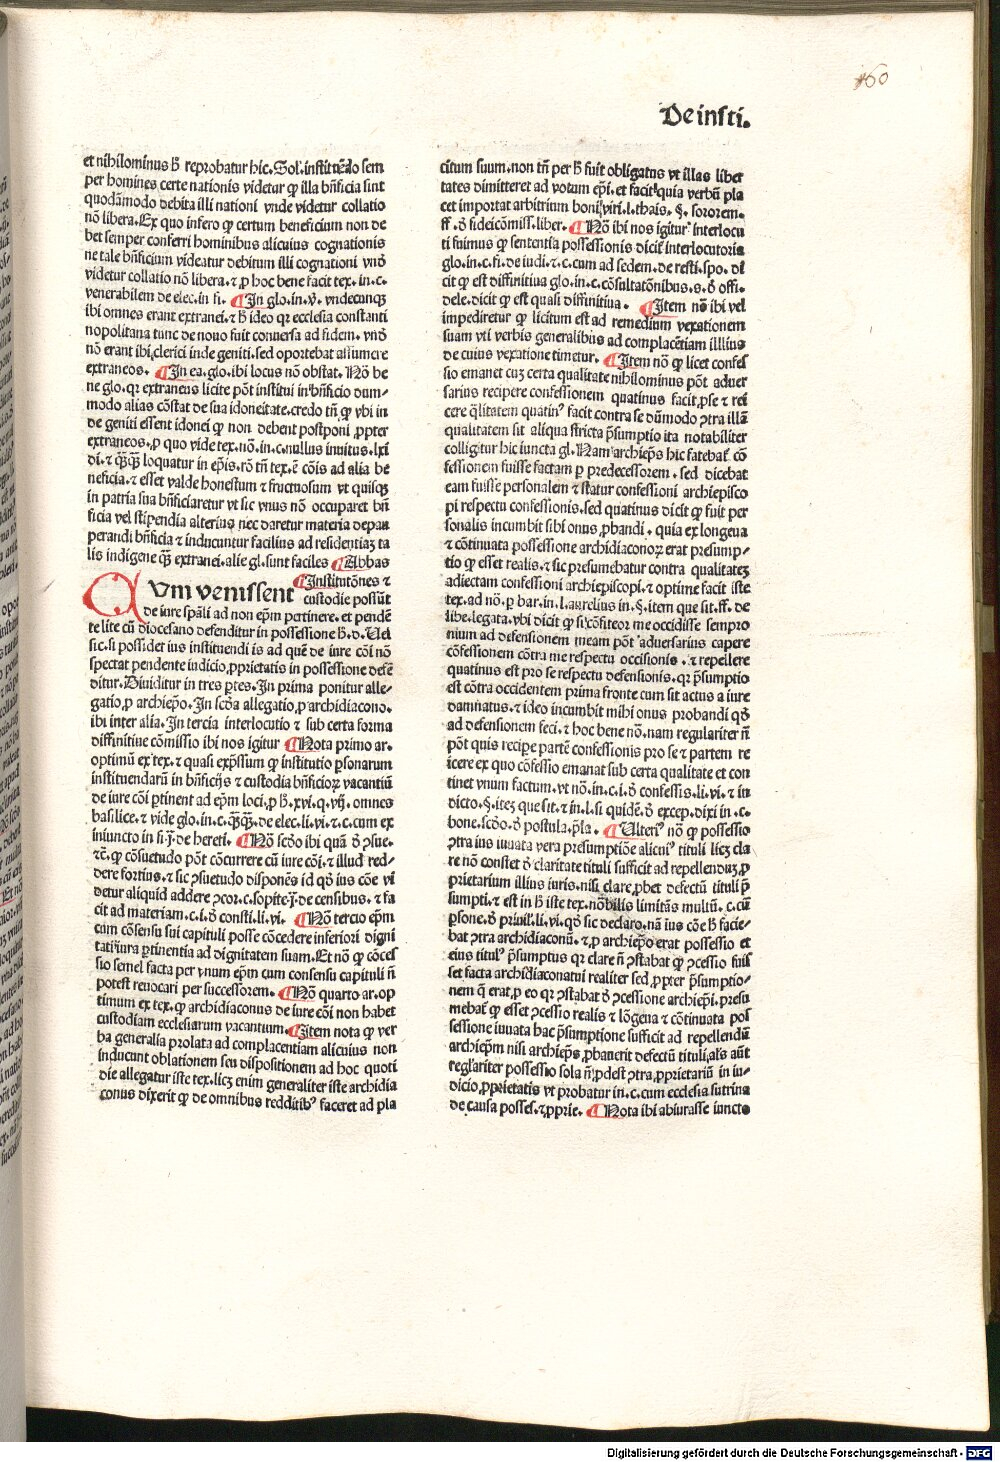 160
De insti.
et nihilominus hꝰ reprobatur hic. Sol. instituēdo sem
per homines certe nationis videtur ꝙ illa bñficia sint
quodāmodo debita illi nationi vnde videtur collatio
nō libera. Ex quo infero ꝙ certum beneficium non de
bet semper conferri hominibus alicuius cognationis
ne tale bñficium videatur debitum illi cognationi vnd̄
videtur collatio nō libera. ⁊ ꝓ hoc bene facit tex. in. c.
venerabilem de elec. in fi. ¶ In glo. in. v̄. vndecunqꝫ
ibi omnes erant extranei. ⁊ h̄ ideo qꝛ ecclesia constanti
nopolitana tunc de nouo fuit conuersa ad fidem. vnd̄
nō erant ibi clerici inde geniti. sed oportebat assumere
extraneos. ¶ In ea. glo. ibi locus nō obstat. Nō be
ne glo. qꝛ extraneus licite pōt institui in bñficio dum-
modo alias cōstat de sua idoneitate. credo tñ ꝙ vbi in
de geniti essent idonei ꝙ non debent postponi ꝓpter
extraneos. ꝓ quo vide tex. nō. in. c. nullus inuitus. lxi
di. ⁊ qꝫqꝫ loquatur in ep̄is. rō tñ tex. ē cōis ad alia be
neficia. ⁊ esset valde honestum ⁊ fructuosum vt quisqꝫ
in patria sua bñficiaretur vt sic vnus nō occuparet bñ
ficia vel stipendia alterius nec daretur materia depau
perandi bñficia ⁊ inducuntur facilius ad residentiaꝫ ta
lis indigene qꝫ extranei. alie gl. sunt faciles ¶ Abbas
Cum venissent ¶ Institutōnes ⁊
custodie possūt
de iure spāli ad non ep̄m pertinere. et pendē
te lite cū diocesano defenditur in possessione h. d. Vel
sic. si possidet ius instituendi is ad quē de iure cōi nō
spectat pendente iudicio ꝓprietatis in possessione defē
ditur. Diuiditur in tres ꝑtes. In prima ponitur alle-
gatio ꝓ archiep̄o. In scd̄a allegatio ꝓ archidiacono.
ibi inter alia. In tercia interlocutio ⁊ sub certa forma
diffinitiue cōmissio ibi nos igitur ¶ Nota primo ar.
optimū ex tex. ⁊ quasi exp̄ssum ꝙ institutio ꝑsonarum
instituendarū in bñficijs ⁊ custodia bñficioꝝ vacantiū
de iure cōi ꝑtinent ad ep̄m loci. ꝓ h̄. xvi. q. vij. omnes
basilice. ⁊ vide glo. in. c. qꝫqꝫ. de elec. li. vi. ⁊ c. cum ex
iniuncto in fi. j̄. de hereti. ¶ Nō scd̄o ibi quā d̄ ꝯsue.
⁊c. ꝙ cōsuetudo pōt cōcurrere cū iure cōi. ⁊ illud red-
dere fortius. ⁊ sic ꝯsuetudo disponēs id qd̄ ius cōe vi
detur aliquid addere ꝯcor. c. sopite. j̄. de censibus. ⁊ fa
cit ad materiam. c. i. d̄ consti. li. vi. ¶ Nō tercio ep̄m
cum cōsensu sui capituli posse cōcedere inferiori digni
tati iura ꝑtinentia ad dignitatem suam. Et nō ꝙ cōces
sio semel facta per vnum ep̄m cum consensu capituli ñ
potest reuocari per successorem. ¶ Nō quarto ar. op
timum ex tex. ꝙ archidiaconus de iure cōi non habet
custodiam ecclesiarum vacantium. ¶ Item nota ꝙ ver
ba generalia prolata ad complacentiam alicuius non
inducunt oblationem seu dispositionem ad hoc quoti
die allegatur iste tex. licꝫ enim generaliter iste archidia
conus dixerit ꝙ de omnibus redditibꝰ faceret ad pla
citum suum. non tñ per h̄ fuit obligatus vt illas liber
tates dimitteret ad votum ep̄i. et facit quia verbū pla
cet importat arbitrium boni viri. l. thais. §. sororem.
ff. d̄ fideicōmiss. liber. ¶ Nō ibi nos igitur interlocu
ti fuimus ꝙ sententia possessionis dicit interlocutoria
glo. in. c. fi. de iudi. ⁊. c. cum ad sedem. de resti. spo. di
cit ꝙ est diffinitiua glo. in. c. cōsultatōnibus. s. d̄ offi.
dele. dicit ꝙ est quasi diffinitiua. ¶ Item nō ibi vel
impediretur ꝙ licitum est ad remedium vexationem
suam vti verbis generalibus ad complacētiam illlius
de cuius vexatione timetur. ¶ Item nō ꝙ licet confes
sio emanet cuꝫ certa qualitate nihilominus pōt aduer
sarius recipere confessionem quatinus facit ꝓ se ⁊ rei
cere q̄litatem quatinꝰ facit contra se dūmodo ꝯtra illā
qualitatem sit aliqua stricta p̄sumptio ita notabiliter
colligitur hic iuncta gl. Nam archiep̄s hic fatebat̉ cō
fessionem fuisse factam ꝑ predecessorem. sed dicebat
eam fuisse personalem ⁊ statur confessioni archiepisco
pi respectu confessionis. sed quatinus dicit ꝙ fuit per
sonalis incumbit sibi onus ꝓbandi. quia ex longeua
⁊ cōtinuata possessione archidiaconoꝝ erat presump-
tio ꝙ esset realis. ⁊ sic presumebatur contra qualitateꝫ
adiectam confessioni archiepiscopi. ⁊ optime facit iste
tex. ad nō. ꝑ bar. in. l. aurelius in. §. item que sit. ff. de
libe. legata. vbi dicit ꝙ si cōfiteor me occidisse sempro
nium ad defensionem meam pōt aduersarius capere
cōfessionem cōtra me respectu occisionis. ⁊ repellere
quatinus est pro se respectu defensionis. qꝛ p̄sumptio
est cōtra occidentem prima fronte cum sit actus a iure
damnatus. ⁊ ideo incumbit mihi onus probandi qd̄
ad defensionem feci. ⁊ hoc bene nō. nam regulariter ñ
pōt quis recipere partē confessionis pro se ⁊ partem re
iicere ex quo cōfessio emanat sub certa qualitate et con
tinet vnum factum. vt nō. in. c. i. d̄ confessis. li. vi. ⁊ in
dicto. §. iteꝫ que sit. ⁊ in. l. si quidē. d̄ excep. dixi in. c.
bone. scd̄o. d̄ postula. p̄la. ¶ Alteriꝰ nō ꝙ possessio
ꝯtra ius iuuata vera presumptiōe alicuiꝰ tituli licꝫ cla
re nō constet d̄ claritate tituli sufficit ad repellenduꝫ ꝓ
prietarium illius iuris. nisi clare ꝓbet defectū tituli p̄
sumpti. ⁊ est in h̄ iste tex. nōbilis limitās multū. c. cū
ꝑsone. d̄ priuil. li. vi. qd̄ sic declaro. nā ius cōe h̄ facie-
bat ꝯtra archidiaconū. ⁊ ꝓ archiep̄o erat possessio et
eius titulꝰ p̄sumptus qꝛ clare ñ ꝯstabat ꝙ ꝯcessio fuis
set facta archidiaconatui realiter sed ꝓpter p̄sumptio-
nem q̄ erat ꝓ eo qꝛ ꝯstabat d̄ ꝯcessione archiep̄i. presu
mebat̉ ꝙ esset ꝯcessio realis ⁊ lōgena ⁊ cōtinuata pos
sessione iuuata hac p̄sumptione sufficit ad repellendū
archiep̄m nisi archiep̄s ꝓbauerit defectū tituli. al̄s aūt
regl̄ariter possessio sola ñ ꝓdest ꝯtra ꝓprietariū in iu-
dicio ꝓprietatis vt probatur in. c. cum ecclesia sutrina
de causa posses. ⁊ ꝓprie. ¶ Nota ibi abiurasse iuncto
Digitalisierung gefördert durch die Deutsche Forschungsgemeinschaft - DFG